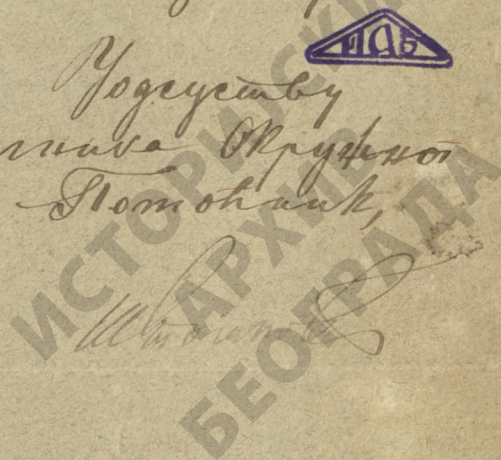 ИАБ
У одсуству
Окружног
Помоћник,
ИСТОРИЈСКИ
АРХИВ
БЕОГРАДА